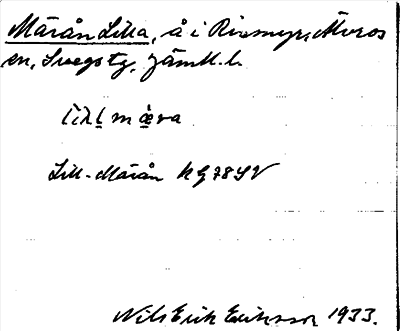 Märån Lilla, å i Rissmyr, Älvros
sn, Sveg tg, Jämtl. l.
lìll mæra
Lill-Märån KG 78 SV
Nils Erik Eriksson 1933.